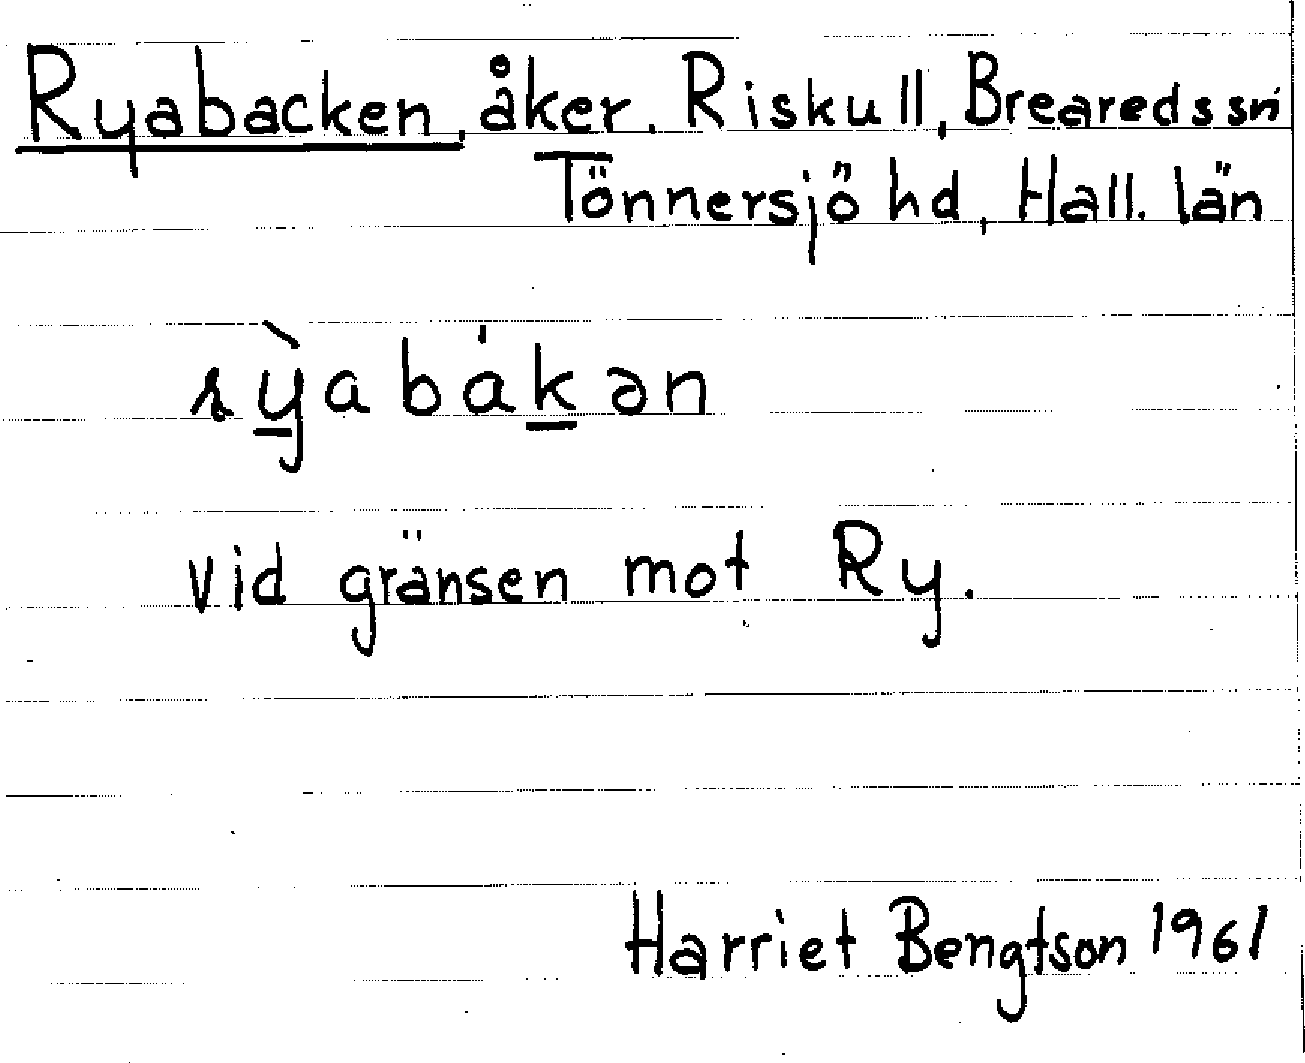 Ryabacken, åker. Riskull, Breareds sn
Tönnersjö hd, Hall. län
rỳabákən
vid gränsen mot Ry.
Harriet Bengtson 1961